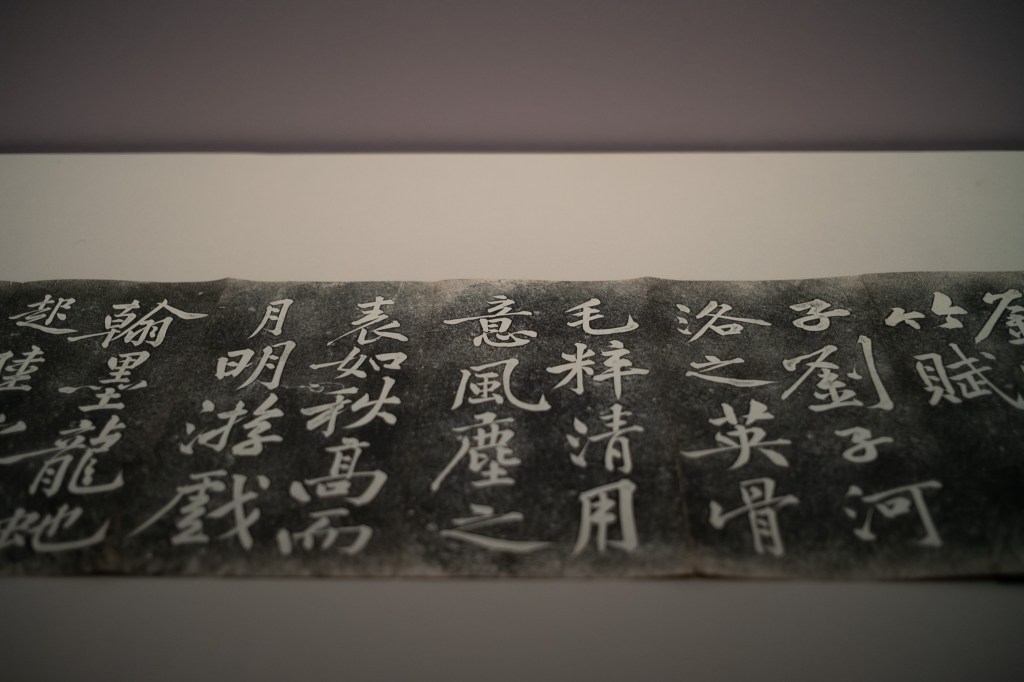 劉
竹賦
子劉子河
洛之英骨
毛粹清用
意風塵之
表如秋高而
月明游戲
翰墨龍虵
起陸